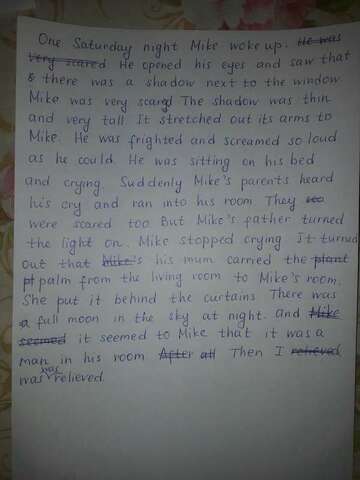 One Saturday night Mike woke up. He was
very scared He opened his eyes and saw that
& there was a shadow next to the window
Mike was very scared The shadow was thin
and very tall It stretched out its arms to
Mike. He was frighted and screamed so loud
as he could. He was sitting on his bed
and crying Suddenly Mike's parents heard
his cry and ran into his room They
were scared too But Mike's father turned
the light on. Mike stopped crying It turned
out that Mike's his mum carried the plant
pl palm from the living room to Mike's room.
She put it behind the curtains There was
a full moon in the sky at night. and Mike
seemed it seemed to Mike that it was a
man in his room After all Then I relieved
was was relieved.